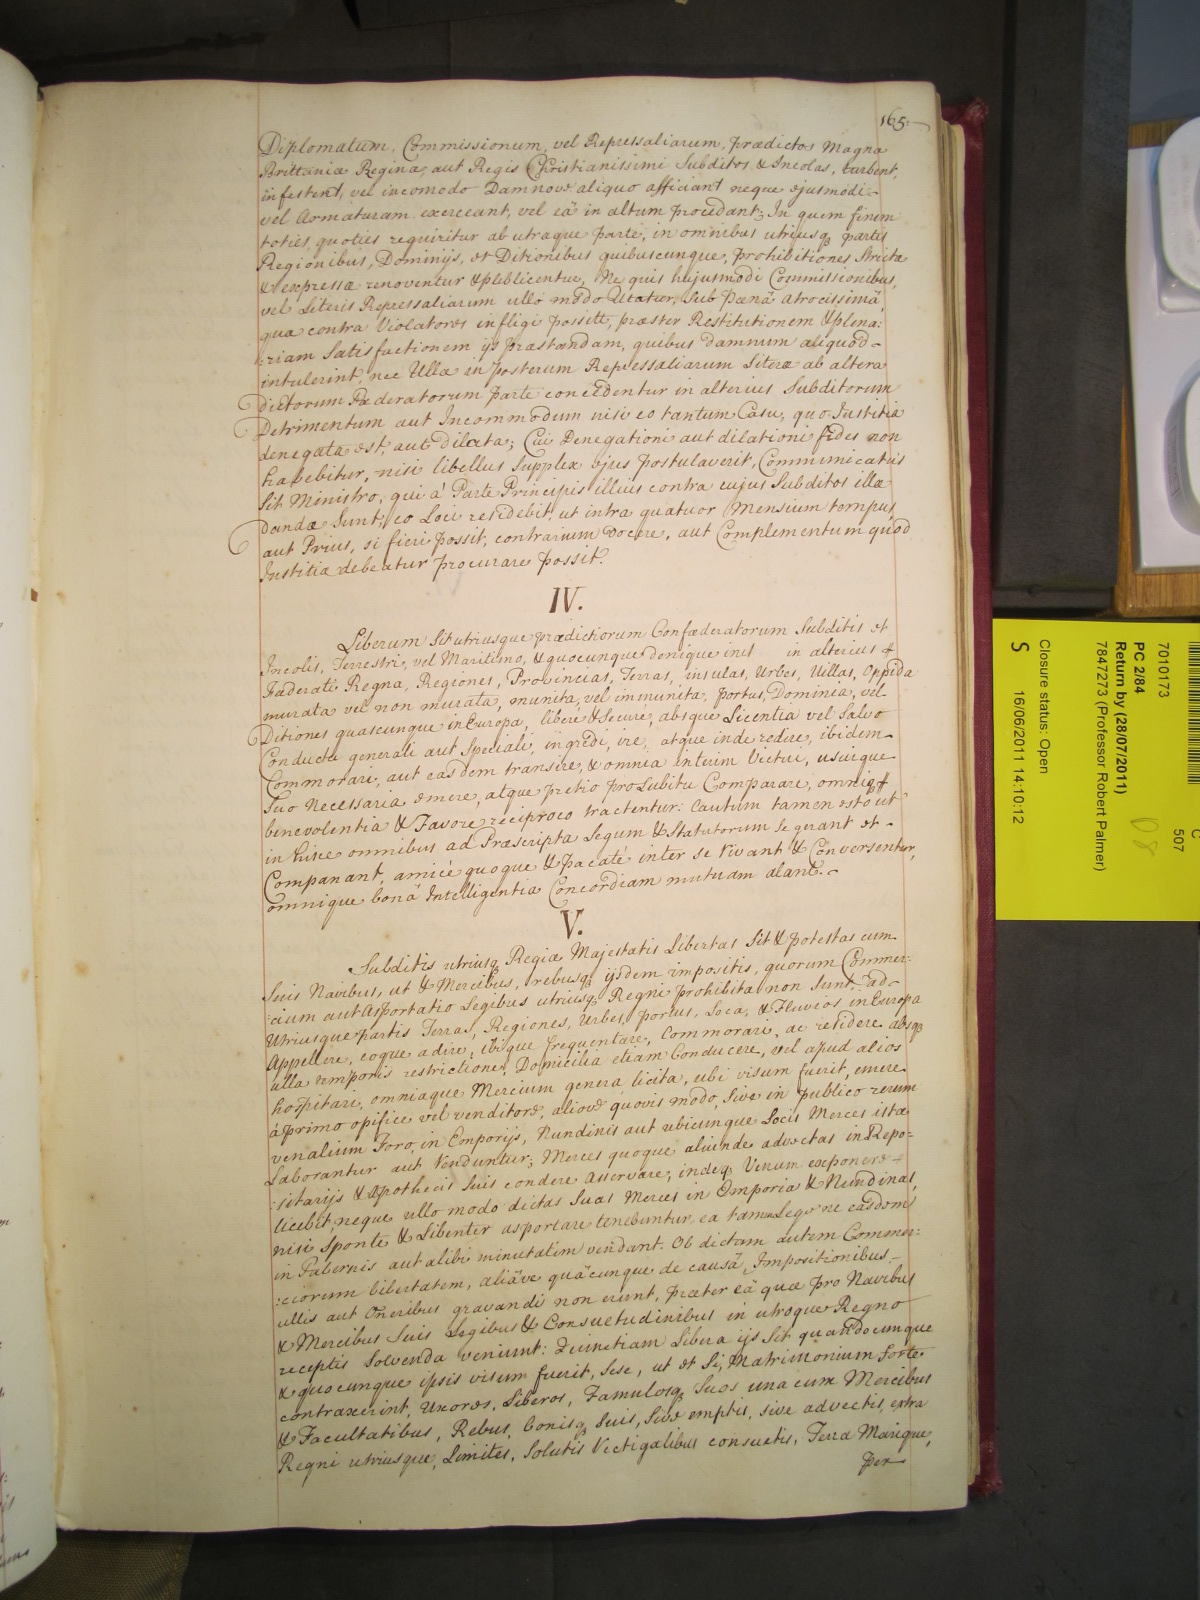 165.
Diplomatum, Commissionum, vel Repressaliarum, prædictos Magnæ
Brittaniæ Reginæ, aut Regis Christianissimi Subditos & Incolas, turbent,
infestent, vel incomodo Damnove aliquo afficiant neque ejusmodi-
vel Armaturam exerceant, vel eâ in altum procedant; In quem finem
toties, quoties requiritur ab utraque parte, in omnibus utriusq partis
Regionibus, Dominijs, et Ditionibus quibuscunque, prohibitiones Strictæ
& expressæ renoventur & publicentur, Ne quis hujusmodi Commissionibus,
vel Literis Repressaliarum ullo modo Utatur, Sub Pænâ atrocissimâ
qua contra Violatores infligi possett, præter Restitutionem & plena:
:riam Satisfactionem ijs præstandam, quibus damnum aliquod-
intulerint, nec Ullæ in posterum Repressaliarum Literæ ab altera
dictorum Fæderatorum parte concedentur in alterius Subditorum
Detrimentum aut Incommodum nisi eo tantum Casu, quo Justitia
denegata est, aut dilata; Cui Denegationi aut dilationi fides non
habebitur, nisi libellus Supplex ejus postulaverit, Communicatus
Sit Ministro, qui à Parte Principis illius contra cujus Subditos illæ
dandæ Sunt, eo Loci residebit, ut intra quatuor Mensium tempus
aut Prius, si fieri possit, contrarium Docere, aut Complementum quod
Justitiæ debeatur procurare possit.
IV.
Liberum Sit utriusque prædictiorum Confæderatorum Subditis et
Incolis, Terrestri, vel Maritimo, & quocunque denique in alterius
Fæderati Regna, Regiones, Provincias, Terras, insulas, Urbes, Villas, Oppida
murata vel non murata, munita, vel immunita, portus, Dominia, vel
Ditiones quascunque in Europa, libere & Secure, absque Licentia vel Salvo
Conductu generali aut Speciali, ingredi, ire, atque inde redire, ibidem-
Commorari, aut easdem transire, & omnia interim Victui, usuique
Suo necessaria emere, atque pretio pro Lubitu Comparare, omniq
benevolentia & Favore reciproco tractentur: Cautum tamen esto ut
in hisce omnibus ad Præscripta Legum & Statutorum Se gerant et-
Companant, amicè quoque & pacatè inter se Vivant & Conversentur,
omnique bonâ Intelligentiâ Concordiam mutuam alant.-
V.
Subditis utriusq Regiæ Majestatis Libertas Sit & potestas cum
Suis Navibus, ut & Mercibus, rebusq ijsdem impositis, quorum Commer:
:cium aut Asportatio Legibus utriusq Regni prohibita non Sunt, ad-
Utriusque partis Terras, Regiones, Urbes, portus, Loca, & Fluvios in Europa
Appellere, eoque adire, ibique frequentare, Commorari, ac residere absq
ulla temporis restrictione, Domicilia etiam Conducere, vel apud alios
hospitari, omniaque Mercium genera licita, ubi visum fuerit, emere
à primo opifice vel venditore, aliove quovis modo, Sive in publico rerum
venalium Foro, in Emporijs, Nundinis aut ubicunque Locis Merces istæ
Laborantur aut Venduntur; Merces quoque aliunde advectas in Repo-
:sitarijs & Apothecis Suis condere Asservare, indeq Venum exponere
licebit, neque ullo modo dictas Suas Merces in Emporia & Nundinas,
nisi Sponte & Libenter asportare tenebuntur, ea tamen Lege ne easdem
in Tabernis aut alibi minutatim vendant. Ob dictam autem Commer:
:ciorum libertatem, aliâve quâcunque de causâ, Impositionibus-
ullis aut Oneribus gravandi non erunt, præter eâ quæ pro Navibus
& Mercibus Suis Legibus & Consuetudinibus in utroque Regno
receptis Solvenda veniunt: Quinetiam Libera ijs Sit quandocunque
& quocunque ipsis visum fuerit, Sese, ut et Si, Matrimonium forte
contraxerint, Uxores, Liberos, Famulosq Suos una cum Mercibus
& Facultatibus, Rebus, bonisq Suis, Sive emptis, sive advectis, extra
Regni utriusque, Limites, Solutis Vectigalibus consuetis, Terra Marique,
per
7010173
C
507
PC 2/84
Return by (28/07/2011)
7847273 (Professor Robert Palmer)
Closure status: Open
S 16/06/2011 14:10:12